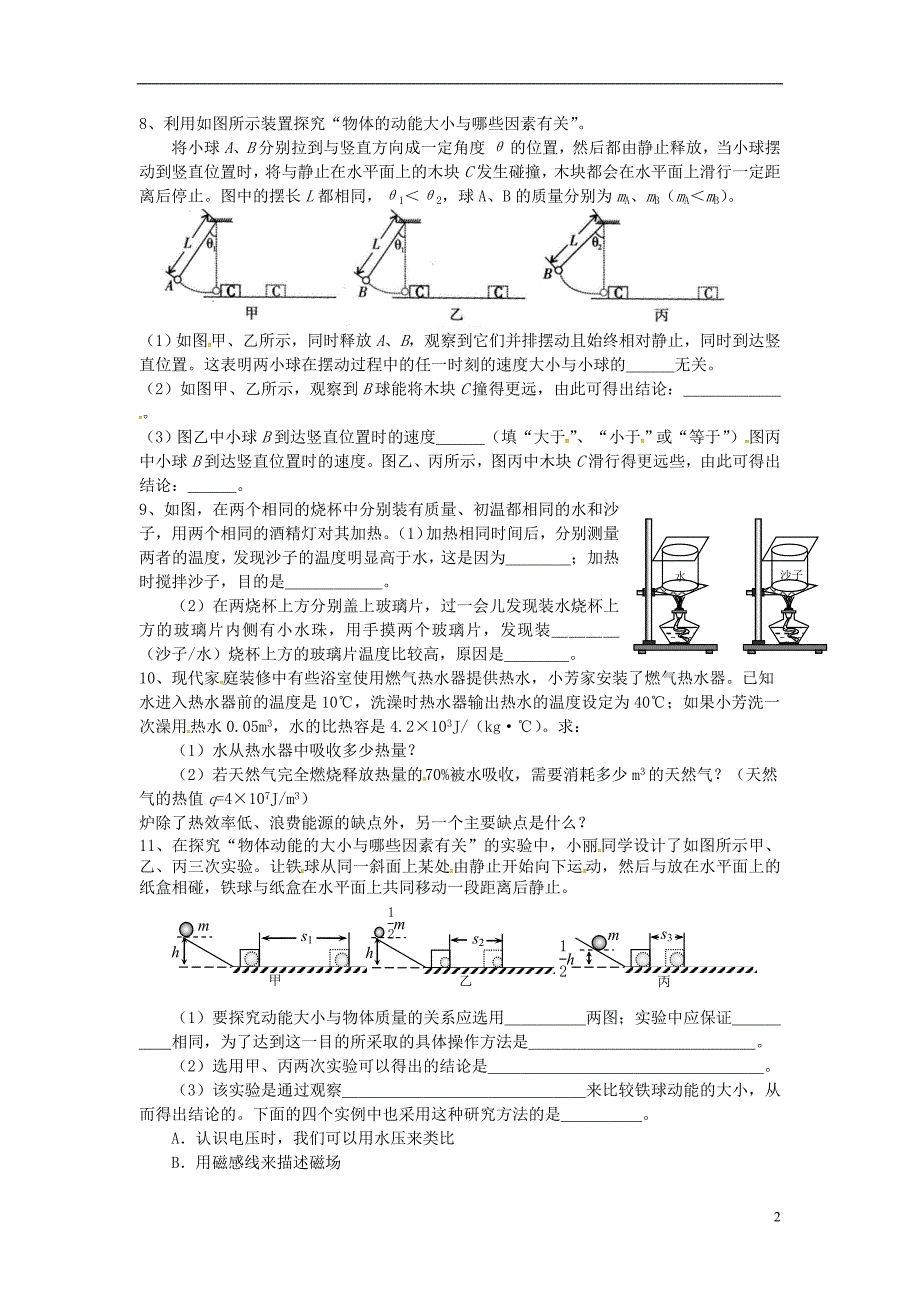 8、利用如图所示装置探究“物体的动能大小与哪些因素有关”。
将小球A、B分别拉到与竖直方向成一定角度θ的位置，然后都由静止释放，当小球摆
动到竖直位置时，将与静止在水平面上的木块C发生碰撞，木块都会在水平面上滑行一定距
离后停止。图中的摆长L都相同，θ1＜θ2，球A、B的质量分别为mA、mB（mA＜mB）。
L θ1 A C C 甲
L θ1 B C C 乙
L θ2 B C C 丙
（1）如图甲、乙所示，同时释放A、B，观察到它们并排摆动且始终相对静止，同时到达竖
直位置。这表明两小球在摆动过程中的任一时刻的速度大小与小球的______无关。
（2）如图甲、乙所示，观察到B球能将木块C撞得更远，由此可得出结论：____________
。
（3）图乙中小球B到达竖直位置时的速度______（填“大于”、“小于”或“等于”）图丙
中小球B到达竖直位置时的速度。图乙、丙所示，图丙中木块C滑行得更远些，由此可得出
结论：______。
9、如图，在两个相同的烧杯中分别装有质量、初温都相同的水和沙
子，用两个相同的酒精灯对其加热。（1）加热相同时间后，分别测量
两者的温度，发现沙子的温度明显高于水，这是因为________；加热
时搅拌沙子，目的是____________。
（2）在两烧杯上方分别盖上玻璃片，过一会儿发现装水烧杯上
方的玻璃片内侧有小水珠，用手摸两个玻璃片，发现装________
（沙子/水）烧杯上方的玻璃片温度比较高，原因是________。
水
沙子
10、现代家庭装修中有些浴室使用燃气热水器提供热水，小芳家安装了燃气热水器。已知
水进入热水器前的温度是10℃，洗澡时热水器输出热水的温度设定为40℃；如果小芳洗一
次澡用热水0.05m³，水的比热容是4.2×10³J/（kg·℃）。求：
（1）水从热水器中吸收多少热量？
（2）若天然气完全燃烧释放热量的70%被水吸收，需要消耗多少m³的天然气？（天然
气的热值q=4×10⁷J/m³）
炉除了热效率低、浪费能源的缺点外，另一个主要缺点是什么？
11、在探究“物体动能的大小与哪些因素有关”的实验中，小丽同学设计了如图所示甲、
乙、丙三次实验。让铁球从同一斜面上某处由静止开始向下运动，然后与放在水平面上的
纸盒相碰，铁球与纸盒在水平面上共同移动一段距离后静止。
m h s1 甲
1/2 m h s2 乙
1/2 h m s3 丙
（1）要探究动能大小与物体质量的关系应选用__________两图；实验中应保证______
____相同，为了达到这一目的所采取的具体操作方法是____________________________。
（2）选用甲、丙两次实验可以得出的结论是__________________________________。
（3）该实验是通过观察______________________________来比较铁球动能的大小，从
而得出结论的。下面的四个实例中也采用这种研究方法的是__________。
A．认识电压时，我们可以用水压来类比
B．用磁感线来描述磁场
2